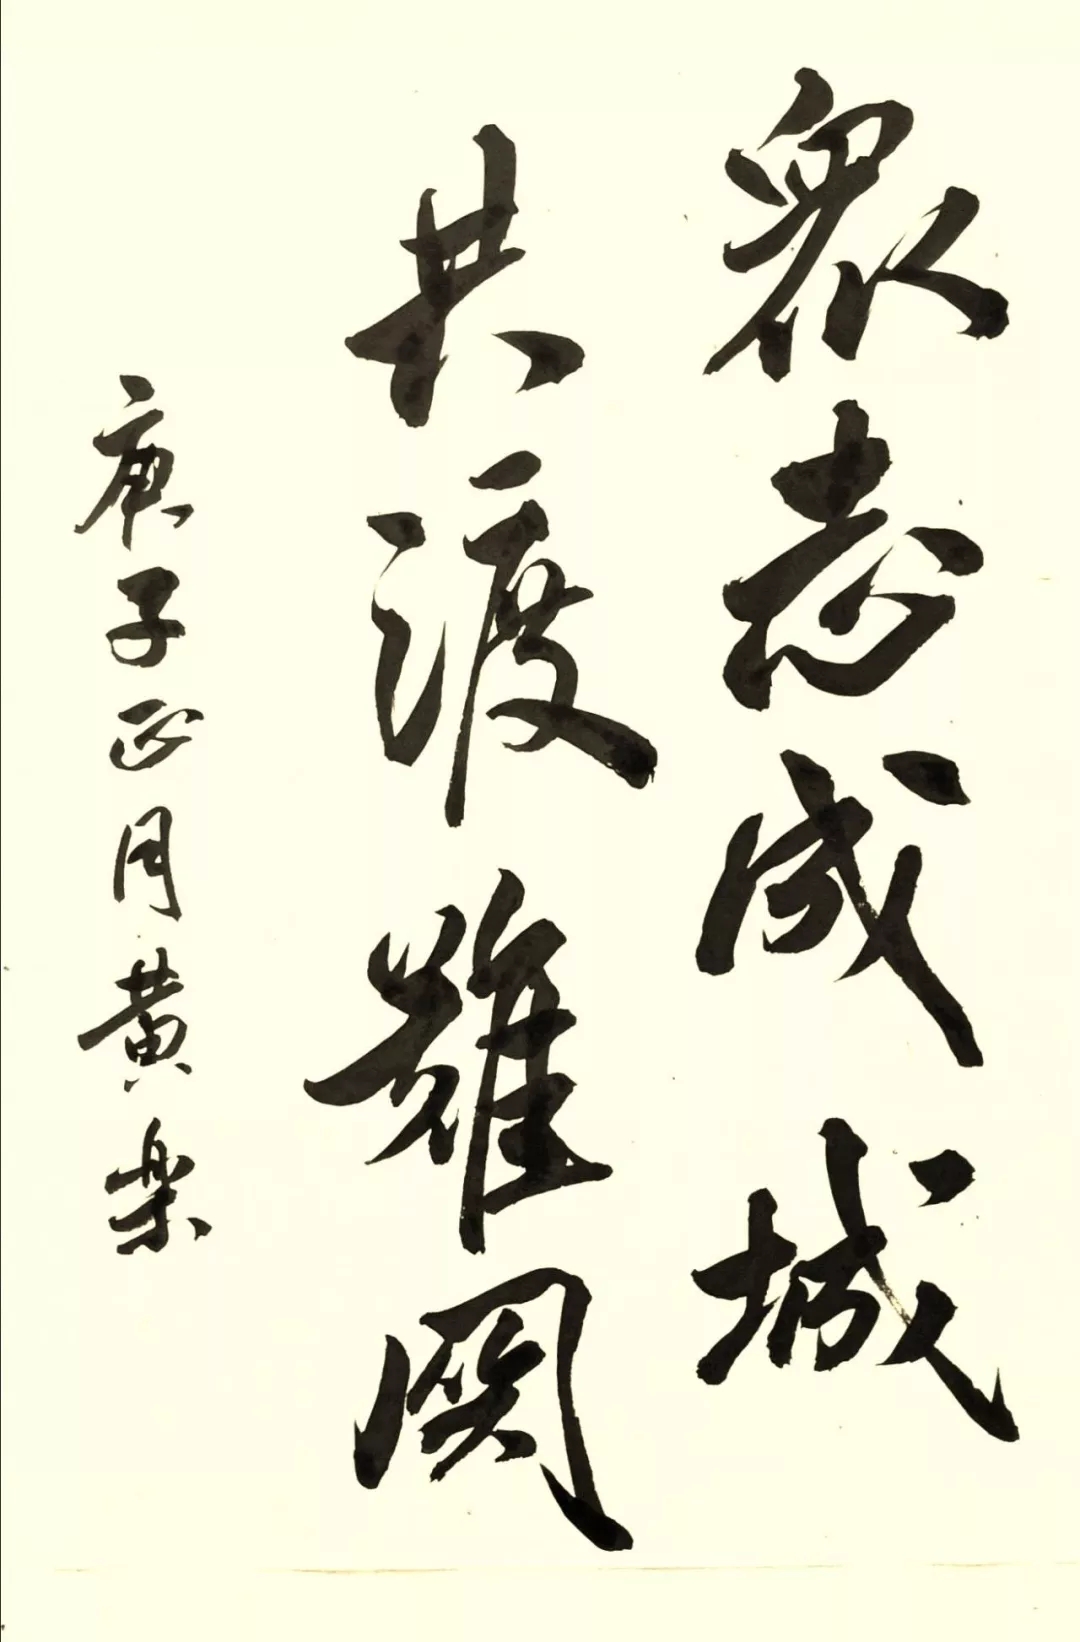 眾志成城
共渡難關
庚子正月黄樂